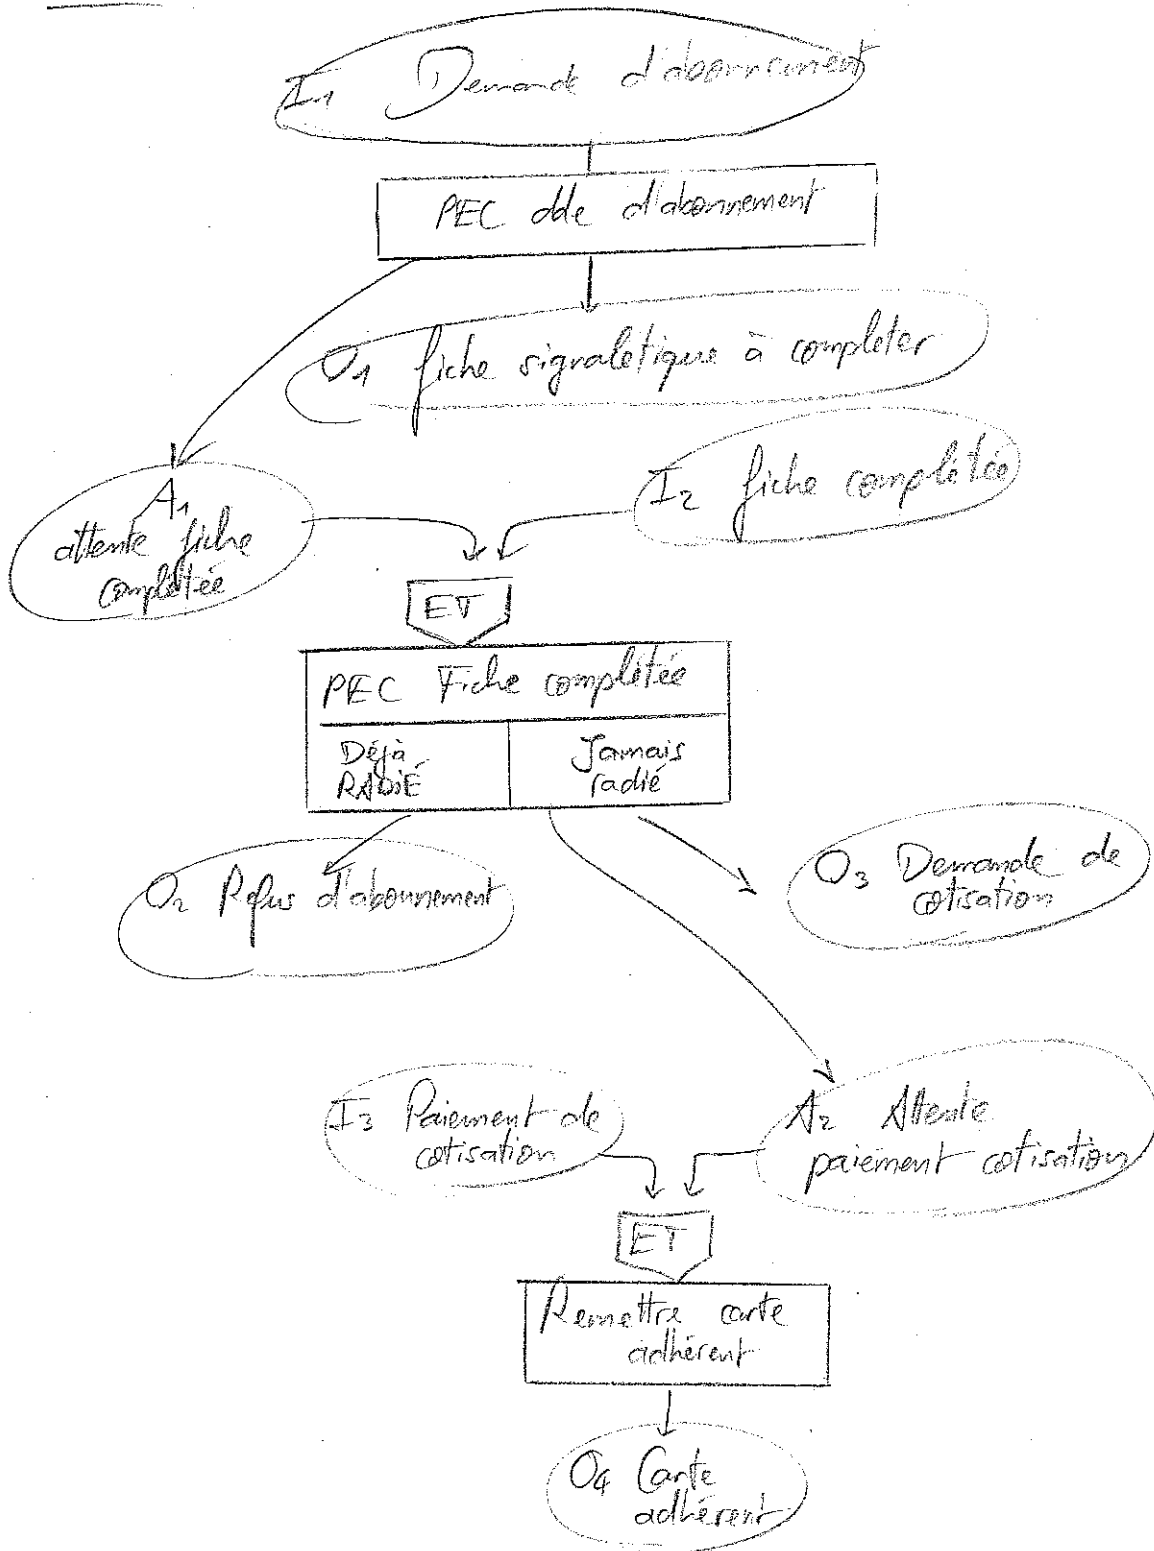 I1 Demande d'abonnement
PEC dde d'abonnement
O1 fiche signalétique à completer
A1
attente fiche
complétée
I2 fiche complétée
ET
PEC Fiche complétée
Déjà
RADIÉ
Jamais
radié
O2 Refus d'abonnement
O3 Demande de
cotisation
I3 Paiement de
cotisation
A2 Attente
paiement cotisation
ET
Remettre carte
adhérent
O4 Carte
adhérent